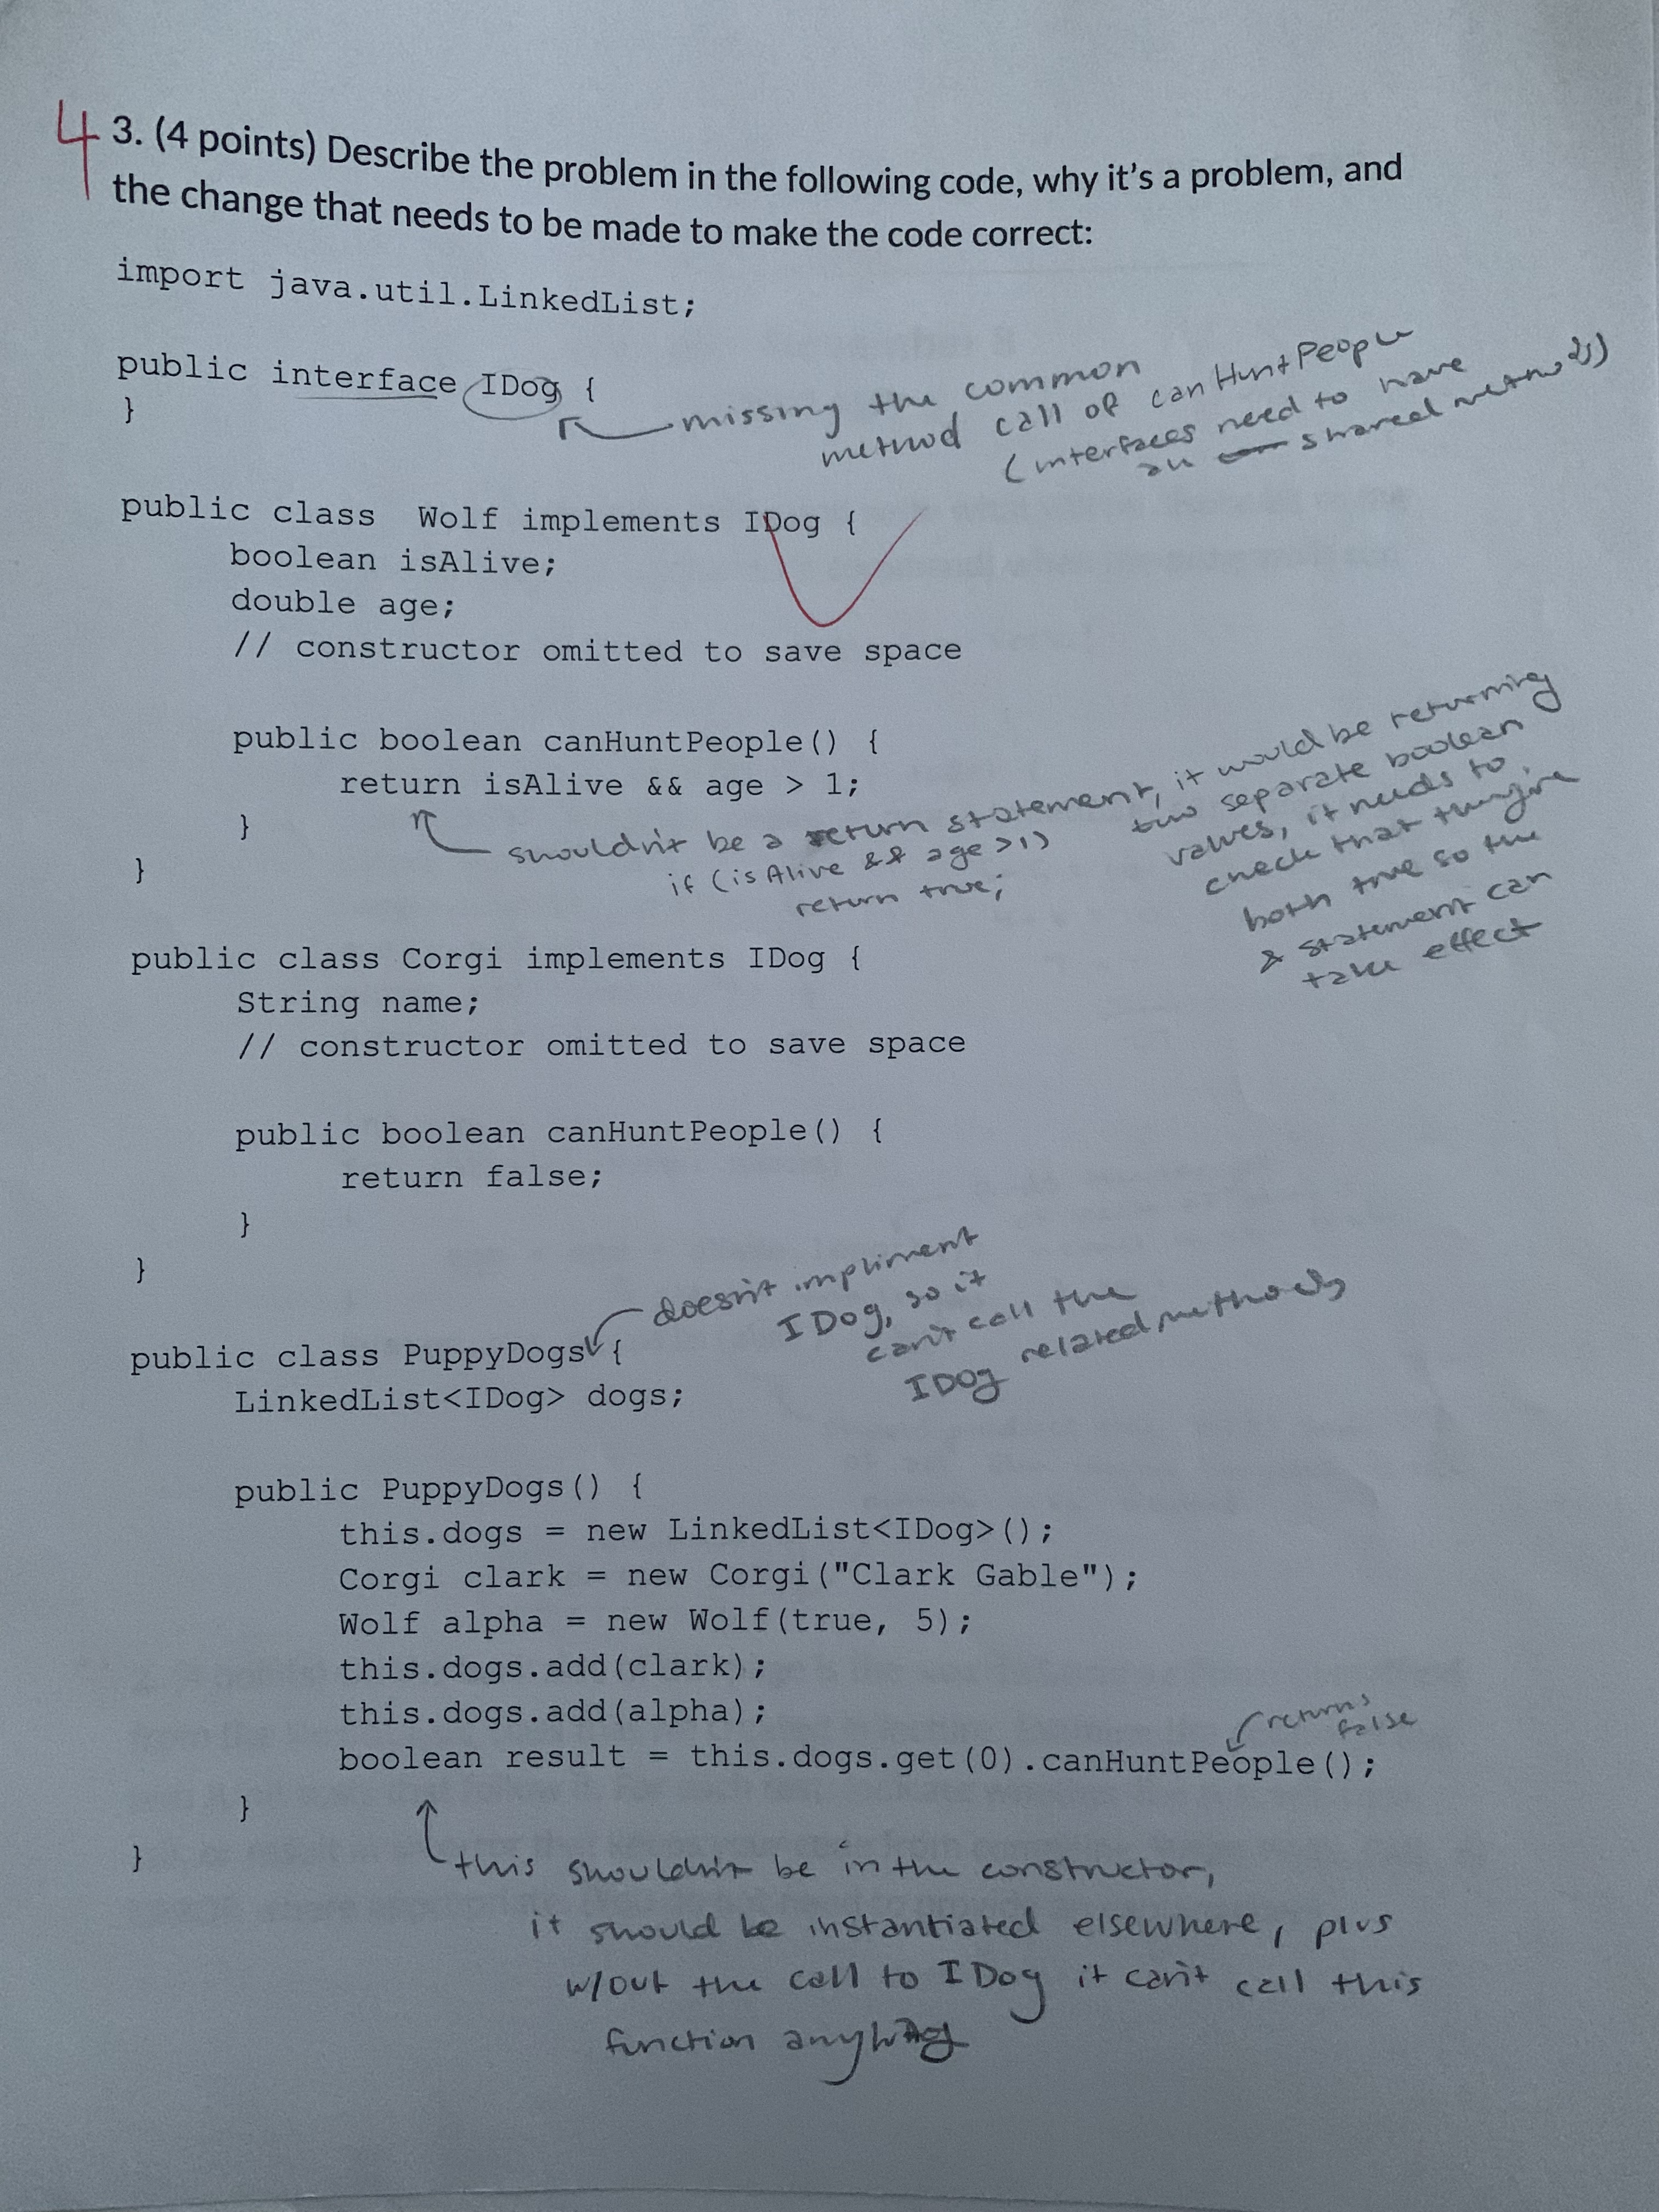 4
3. (4 points) Describe the problem in the following code, why it's a problem, and
the change that needs to be made to make the code correct:
import java.util.LinkedList;
public interface IDog {
}
missing the common
method call of canHuntPeople
(interfaces need to have
all shared methods)
public class  Wolf implements IDog {
boolean isAlive;
double age;
// constructor omitted to save space
public boolean canHuntPeople() {
return isAlive && age > 1;
}
}
shouldn't be a return statement, it would be returning
two separate boolean
values, it needs to
check that
both true so the
& statement can
take effect
if (isAlive && age >1)
return true;
public class Corgi implements IDog {
String name;
// constructor omitted to save space
public boolean canHuntPeople() {
return false;
}
}
doesn't impliment
IDog, so it
can't call the
IDog related methods
public class PuppyDogs {
LinkedList<IDog> dogs;
public PuppyDogs() {
this.dogs = new LinkedList<IDog>();
Corgi clark = new Corgi("Clark Gable");
Wolf alpha = new Wolf(true, 5);
this.dogs.add(clark);
this.dogs.add(alpha);
returns
false
boolean result = this.dogs.get(0).canHuntPeople();
}
}
this shouldn't be in the constructor,
it should be instantiated elsewhere, plus
w/out the call to IDog it can't call this
function